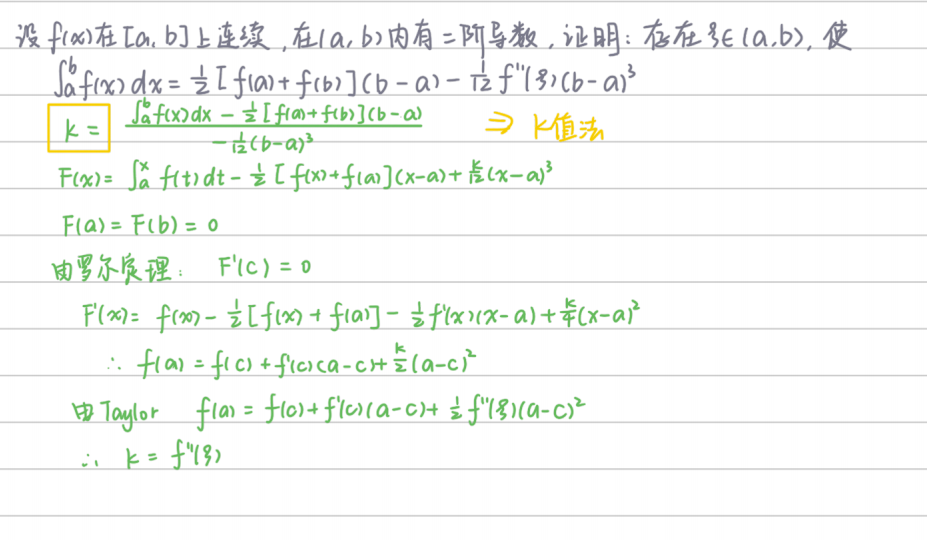 设f(x)在[a,b]上连续,在(a,b)内有二阶导数,证明:存在ξ∈(a,b),使
∫ₐᵇf(x)dx=½[f(a)+f(b)](b-a)-1/12 f''(ξ)(b-a)³
k= (∫ₐᵇf(x)dx-½[f(a)+f(b)](b-a))/(-1/12(b-a)³) ⇒ k值法
F(x)=∫ₐˣ f(t)dt-½[f(x)+f(a)](x-a)+k/12(x-a)³
F(a)=F(b)=0
由罗尔定理: F'(c)=0
F'(x)= f(x)-½[f(x)+f(a)]-½f'(x)(x-a)+k/4(x-a)²
∴ f(a)=f(c)+f'(c)(a-c)+k/2(a-c)²
由Taylor f(a)=f(c)+f'(c)(a-c)+½f''(ξ)(a-c)²
∴ k=f''(ξ)